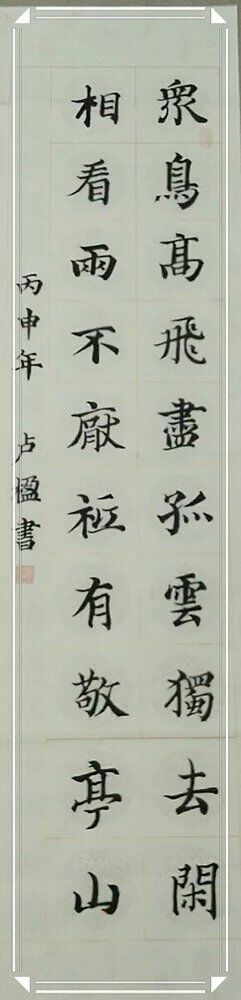 衆鳥髙飛盡孤雲獨去閑
相看兩不厭祗有敬亭山
丙申年 卢楹書